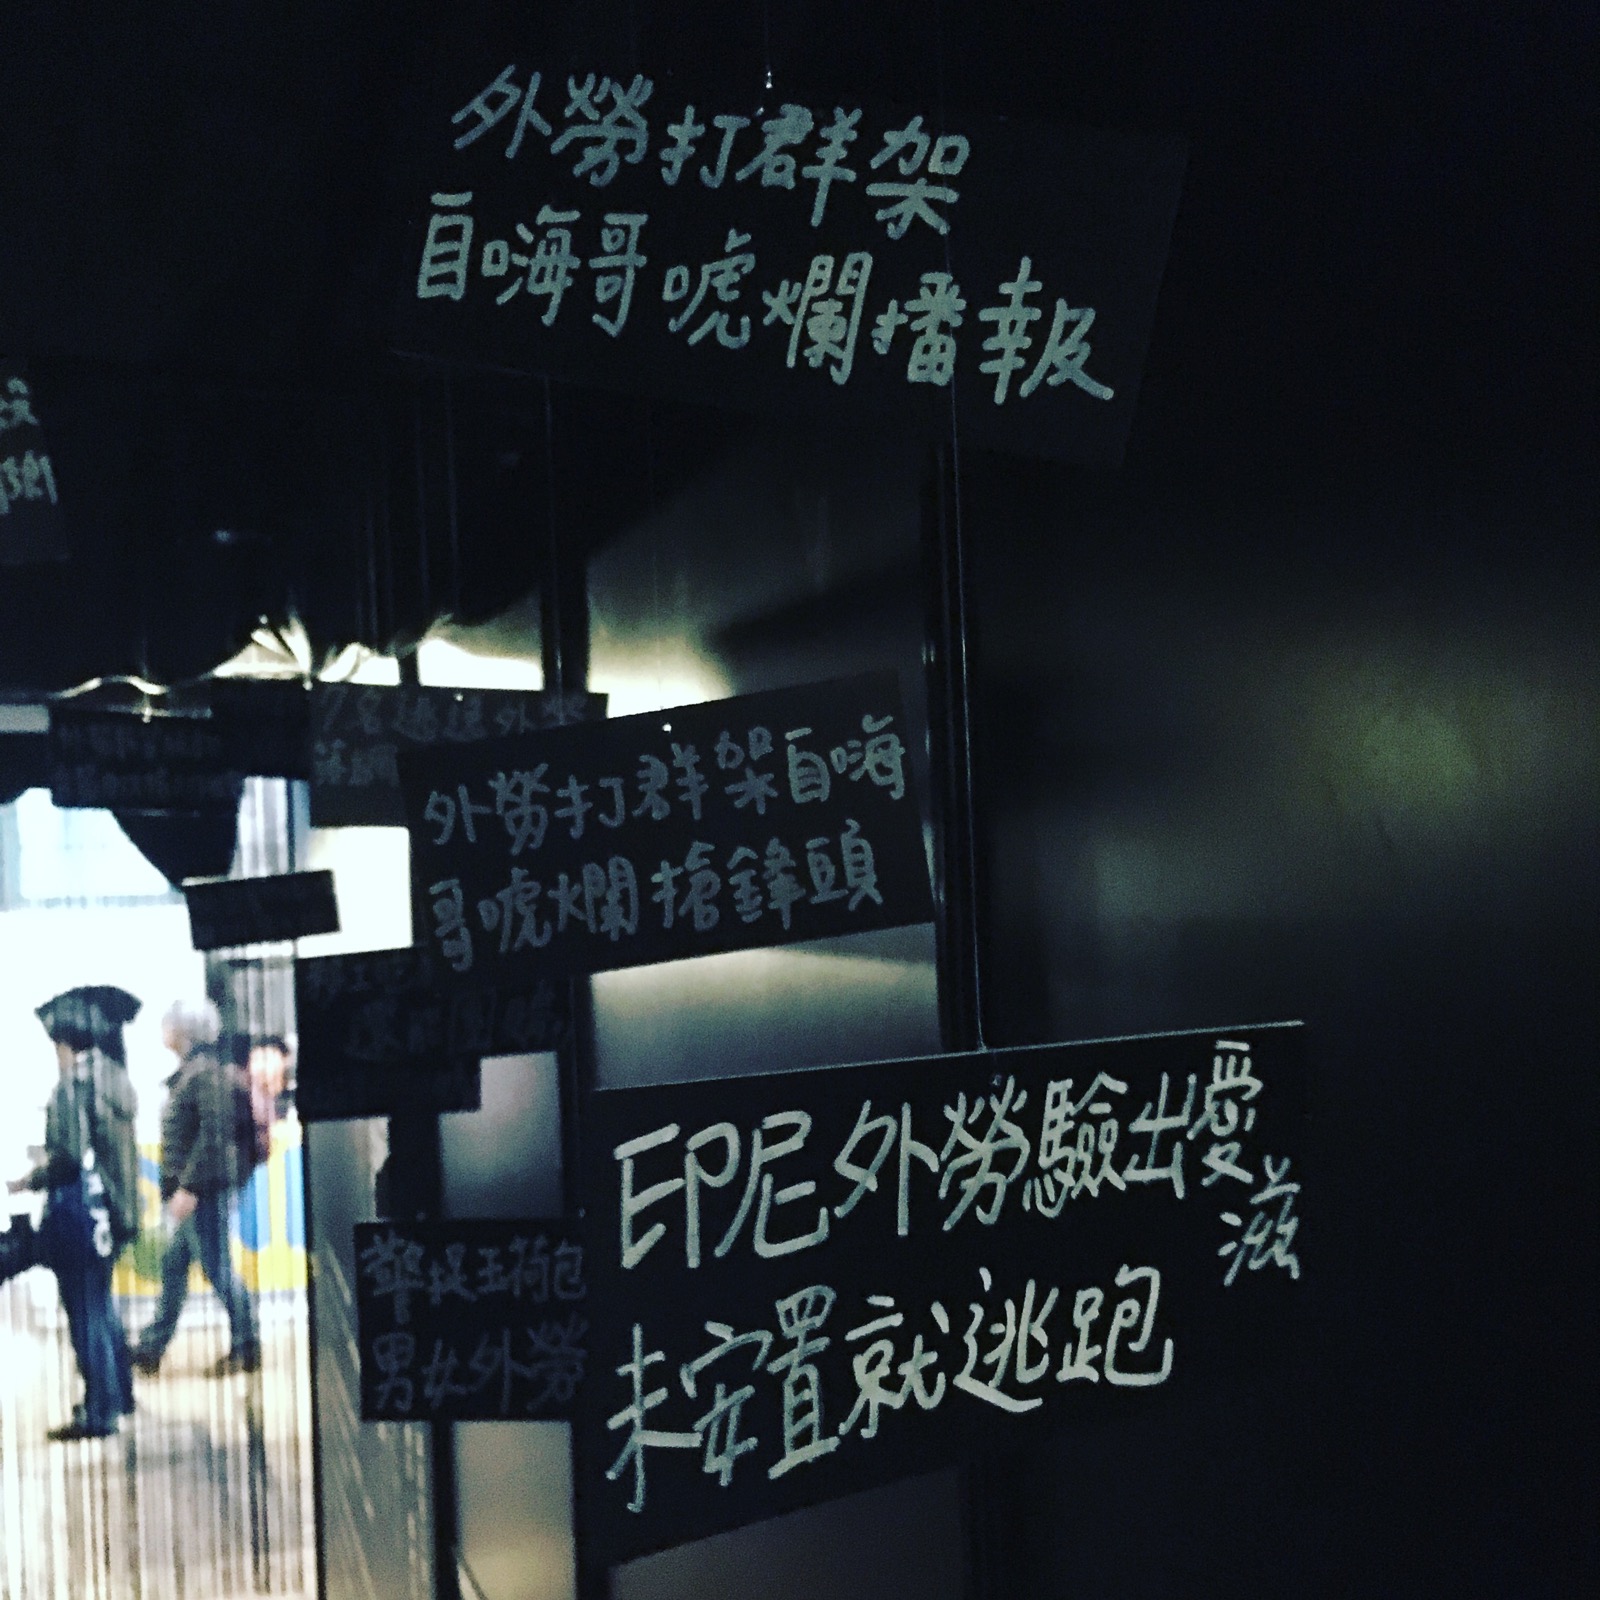 外勞打群架
自嗨哥唬爛播報
外勞打群架自嗨
哥唬爛搶鋒頭
印尼外勞驗出愛滋
未安置就逃跑
警捉玉荷包
男女外勞
7名逃逸外勞